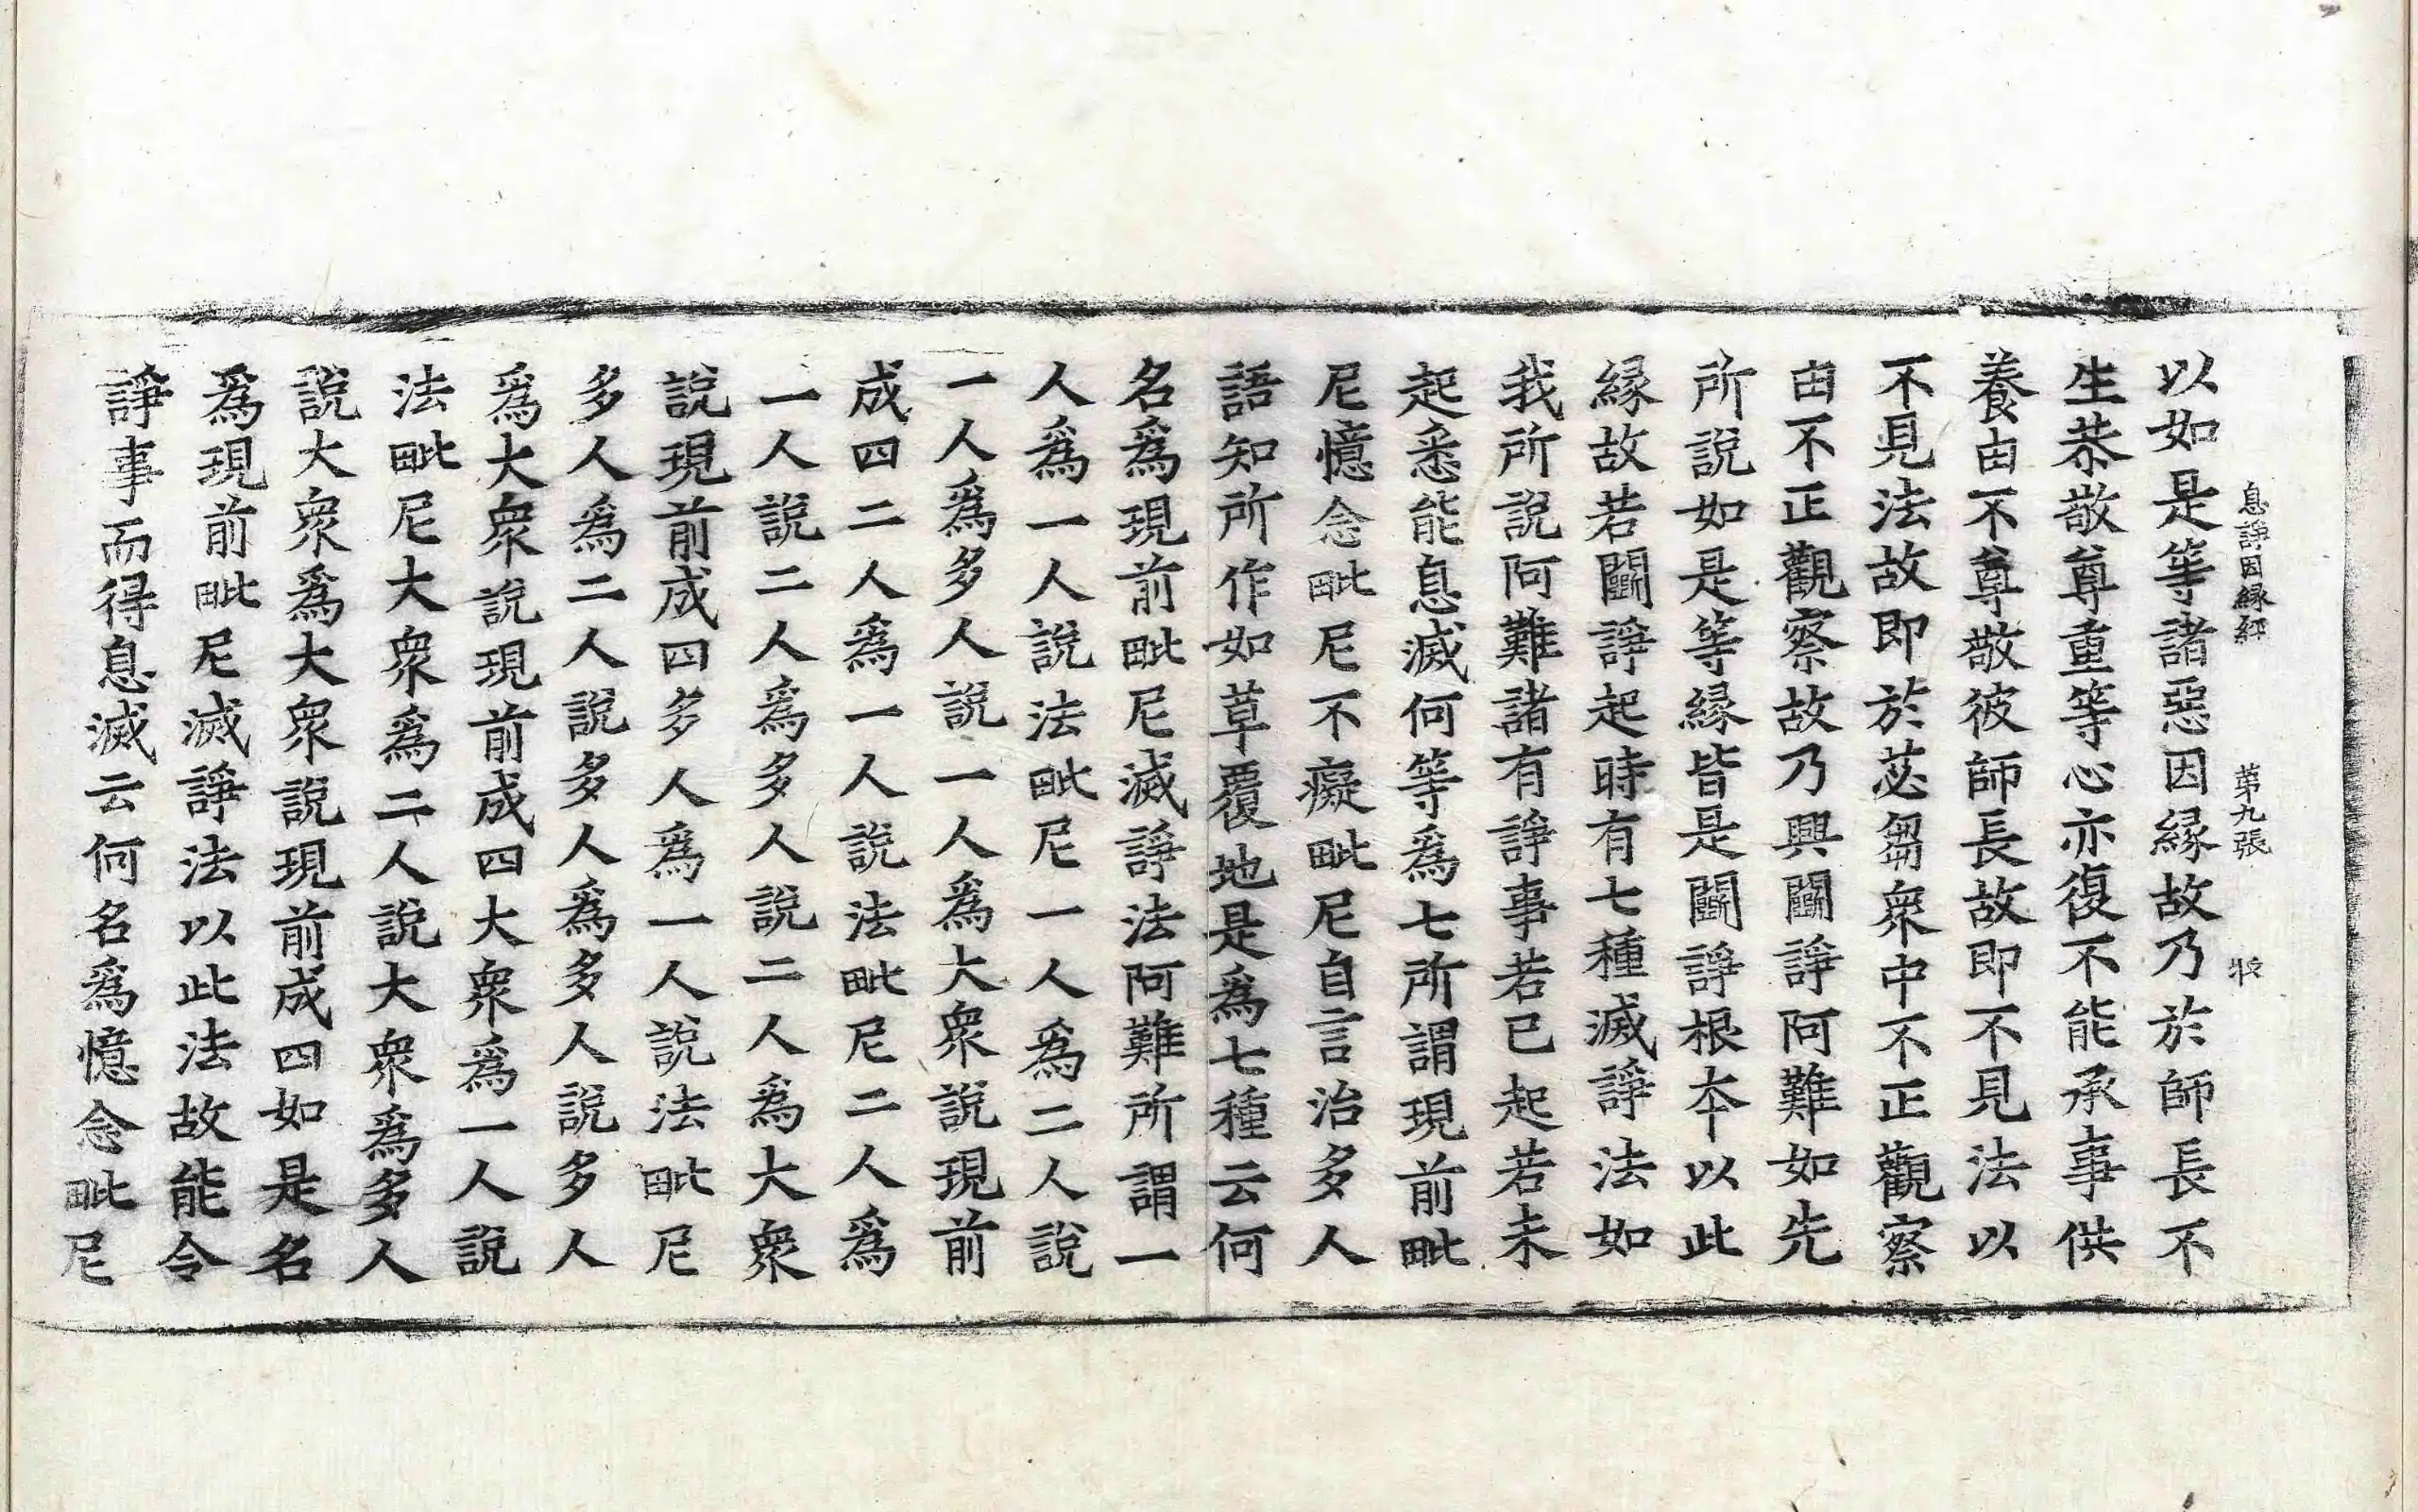 息諍因縁經 第九張 牧
以如是等諸惡因縁故乃於師長不
生恭敬尊重等心亦復不能承事供
養由不尊敬彼師長故即不見法以
不見法故即於苾芻衆中不正觀察
由不正觀察故乃興鬭諍阿難如先
所說如是等縁皆是鬭諍根本以此
縁故若鬭諍起時有七種滅諍法如
我所說阿難諸有諍事若已起若未
起悉能息滅何等爲七所謂現前毗
尼憶念毗尼不癡毗尼自言治多人
語知所作如草覆地是爲七種云何
名爲現前毗尼滅諍法阿難所謂一
人爲一人說法毗尼一人爲二人說
一人爲多人說一人爲大衆說現前
成四二人爲一人說法毗尼二人爲
一人說二人爲多人說二人爲大衆
說現前成四多人爲一人說法毗尼
多人爲二人說多人爲多人說多人
爲大衆說現前成四大衆爲一人說
法毗尼大衆爲二人說大衆爲多人
說大衆爲大衆說現前成四如是名
爲現前毗尼滅諍法以此法故能令
諍事而得息滅云何名爲憶念毗尼